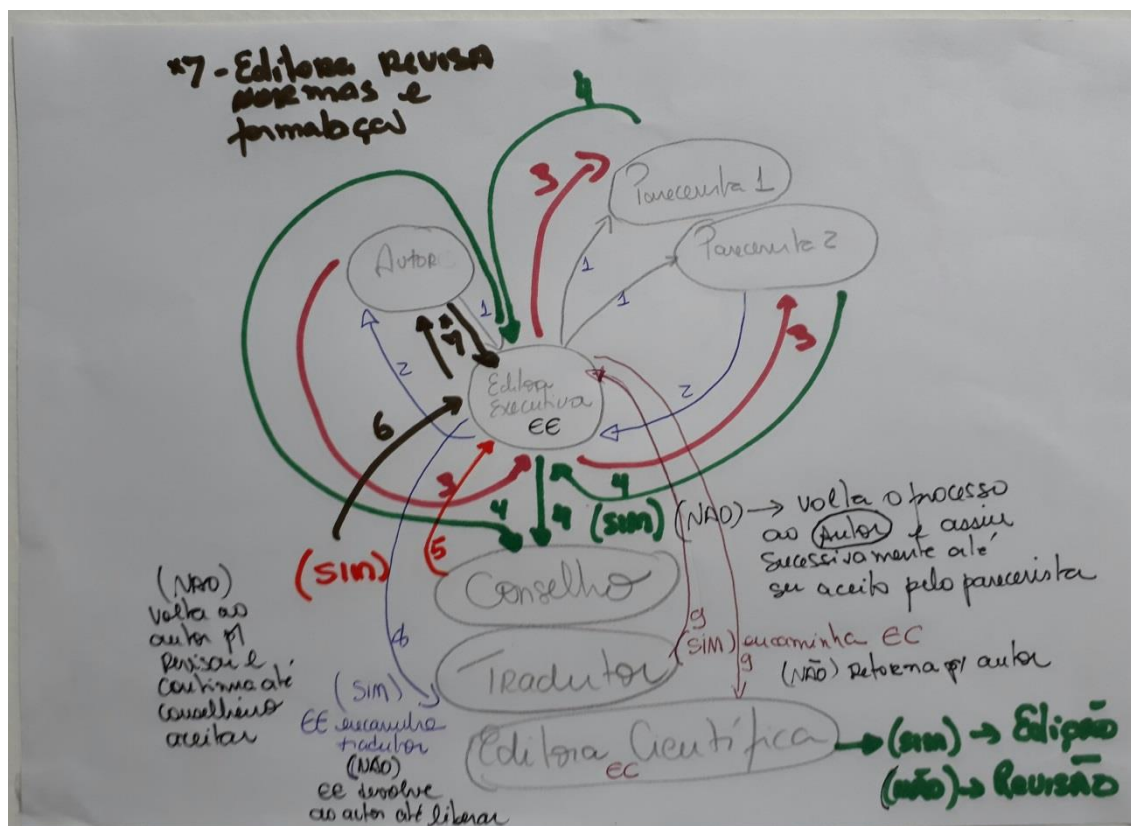 *7 - Editora REVISA
NORMAS e
formatação
4
3
Parecerista 1
Parecerista 2
Autor
1
1
1
*7
2
2
3
Editora
Executiva
EE
6
3
5
4
4
4
(SIM)
(SIM)
(NÃO) → volta o processo
ao Autor e assim
sucessivamente até
ser aceito pelo parecerista
Conselho
(NAO)
volta ao
autor p/
Revisar e
continua até
conselheiro
aceitar
8
9
(SIM) encaminha EC
9
(NÃO) Retorna p/ autor
Tradutor
(SIM)
EE encaminha
tradutor
(NÃO)
EE devolve
ao autor até liberar
Editora Científica
EC
(SIM) → Edição
(NÃO) → REVISÃO